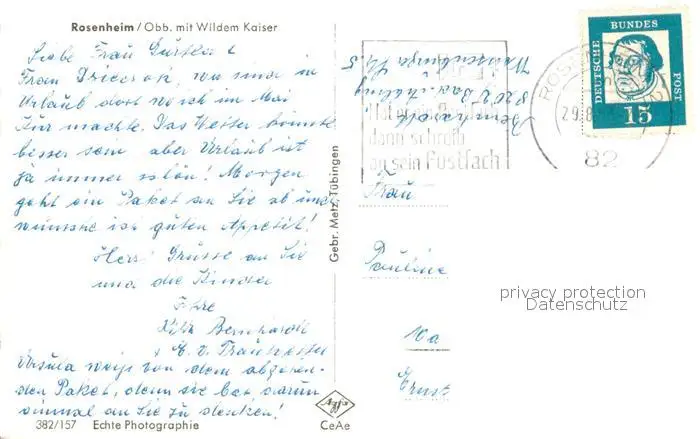 Rosenheim / Obb. mit Wildem Kaiser
Liebe Frau
Frau wir sind in
Urlaub dort wo ich im Mai
Kur machte. Das Wetter könnte
besser sein aber Urlaub ist
ja immer schön! Morgen
geht ein Paket an Sie ab und
wünsche ich guten Appetit!
Herzl Grüsse an Sie
und die Kinder
Ihre
Bernhardt
Ursula weiß von dem
den Paket, denn sie bat darum
einmal an Sie zu denken!
382/157 Echte Photographie
Gebr. Metz, Tübingen
CeAe
Bernhardt
8202 Bad Aibling
dann schreib
an sein Postfach
82
DEUTSCHE BUNDES POST
15
Frau
Pauline
Ernst
privacy protection
Datenschutz